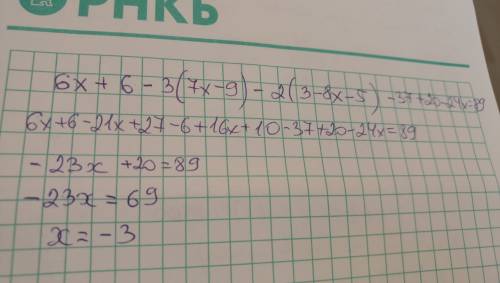 РНКБ
6x + 6 - 3(7x-9) - 2(3-8x-5) - 37+20-24x=89
6x+6-21x+27-6+16x+10-37+20-24x=89
- 23x +20=89
-23x = 69
x = - 3